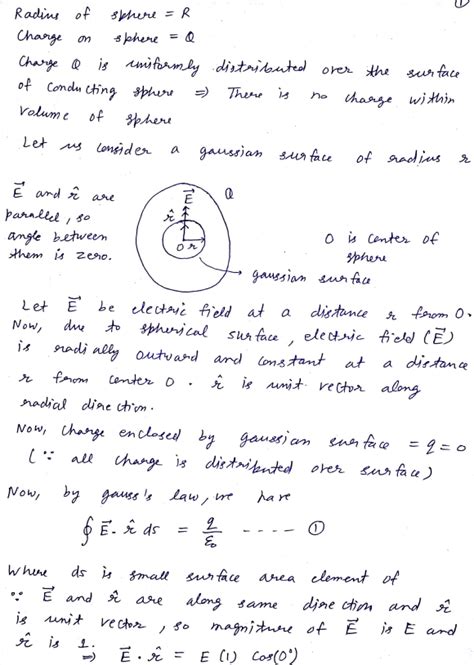 ①
Radius of sphere = R
Charge on sphere = Q
Charge Q is uniformly distributed over the surface
of conducting sphere ⇒ There is no charge within
volume of sphere
Let us consider a gaussian surface of radius r
E⃗ and r̂ are
parallel, so
angle between
them is zero.
E⃗
Q
r̂
O r
O is center of
sphere
gaussian surface
Let E⃗ be electric field at a distance r from O.
Now, due to spherical surface, electric field (E⃗)
is radially outward and constant at a distance
r from center O. r̂ is unit vector along
radial direction.
Now, charge enclosed by gaussian surface = q = 0
(∵ all charge is distributed over surface)
Now, by gauss's law, we have
∮ E⃗. r̂ ds = q/ε₀ ---- ①
Where ds is small surface area element of
∵ E⃗ and r̂ are along same direction and r̂
is unit vector, so magniture of E⃗ is E and
r̂ is 1.
⇒ E⃗. r̂ = E (1) cos(0°)